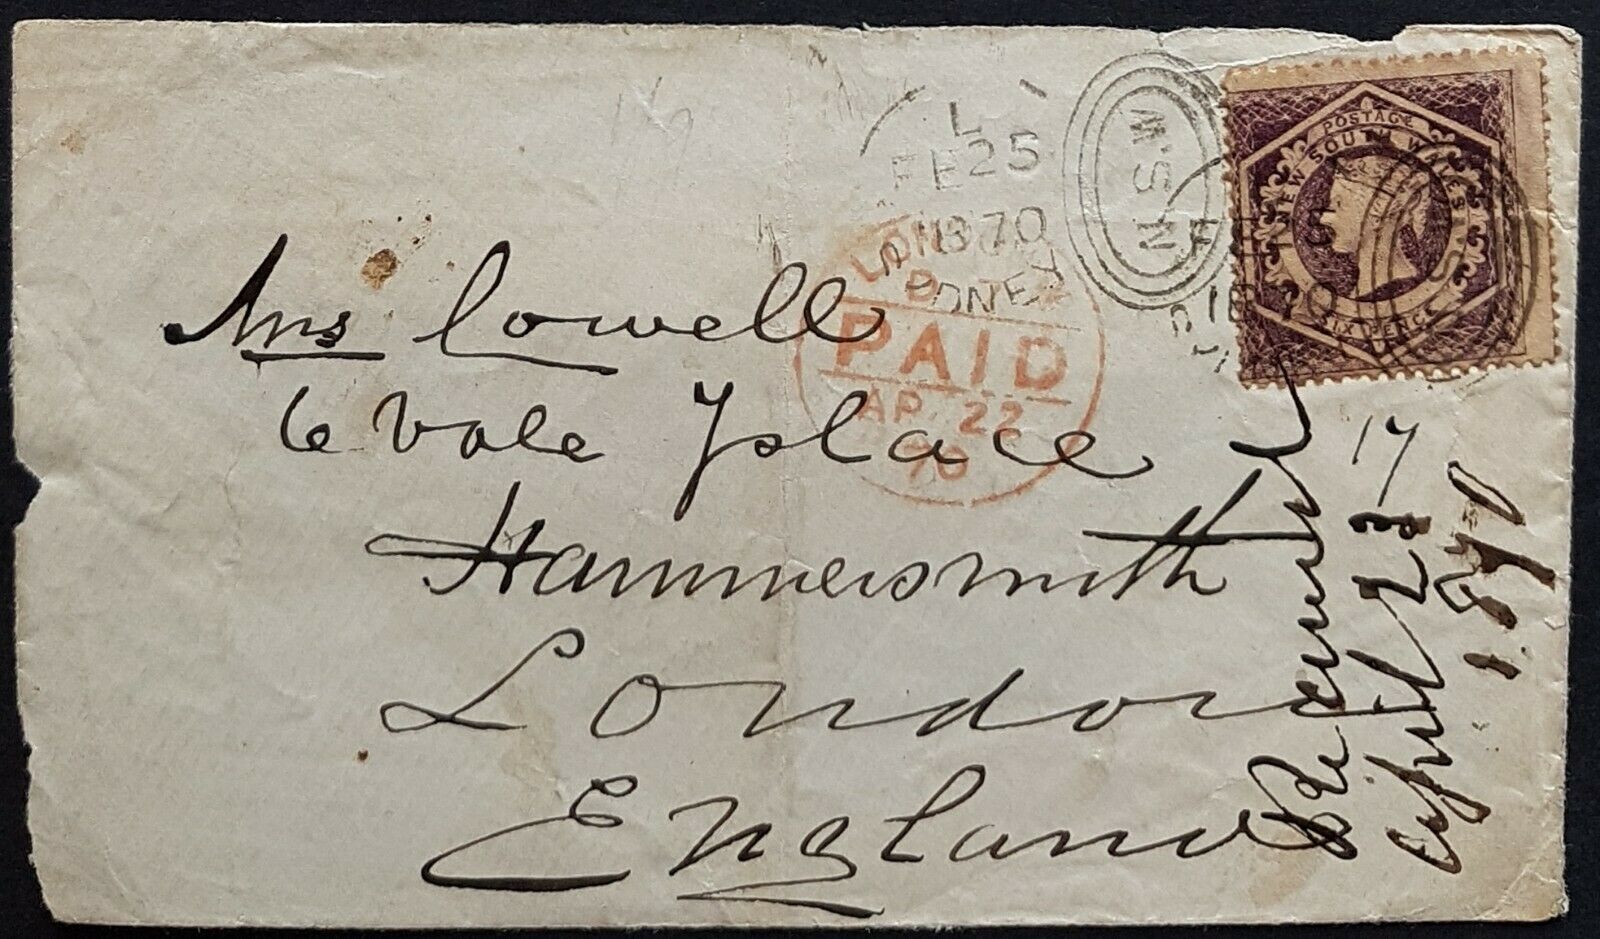 POSTAGE
NEW SOUTH WALES
SIX PENCE
N.S.W
L 1
FE 25
1870
SYDNEY
LONDON
PAID
AP 22
70
Mrs Lowell
6 Vale Place
Hammersmith
London
England
Received
April 23
17
1870